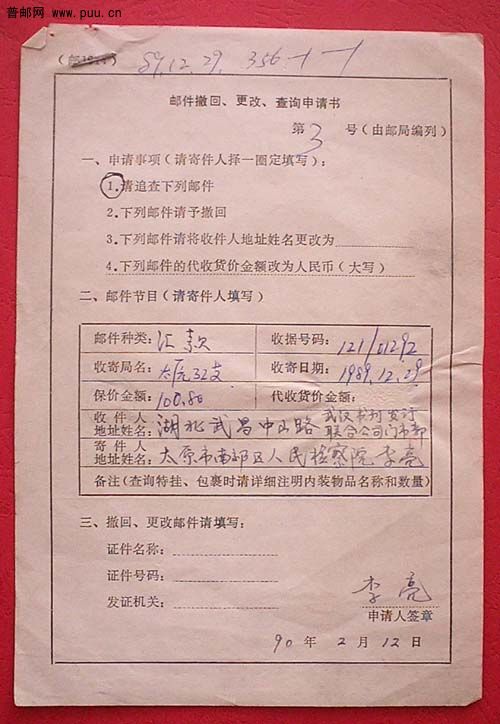 普邮网
www.puu.cn
89.12.29. 356
邮件撤回、更改、查询申请书
第 3 号(由邮局编列)
一、申请事项(请寄件人择一圈定填写):
1.请追查下列邮件
2.下列邮件请予撤回
3.下列邮件请将收件人地址姓名更改为
4.下列邮件的代收货价金额改为人民币(大写)
二、邮件节目(请寄件人填写)
邮件种类: 汇款 收据号码: 121/01292
收寄局名: 太原32支 收寄日期: 1989.12.29
保价金额: 100.80 代收货价金额:
收件人地址姓名: 湖北武昌中山路 武汉书刊发行联合公司门市部
寄件人地址姓名: 太原市南郊区人民检察院 李亮
备注(查询特挂、包裹时请详细注明内装物品名称和数量)
三、撤回、更改邮件请填写:
证件名称:
证件号码:
发证机关:
李亮
申请人签章
90 年 2 月 12 日